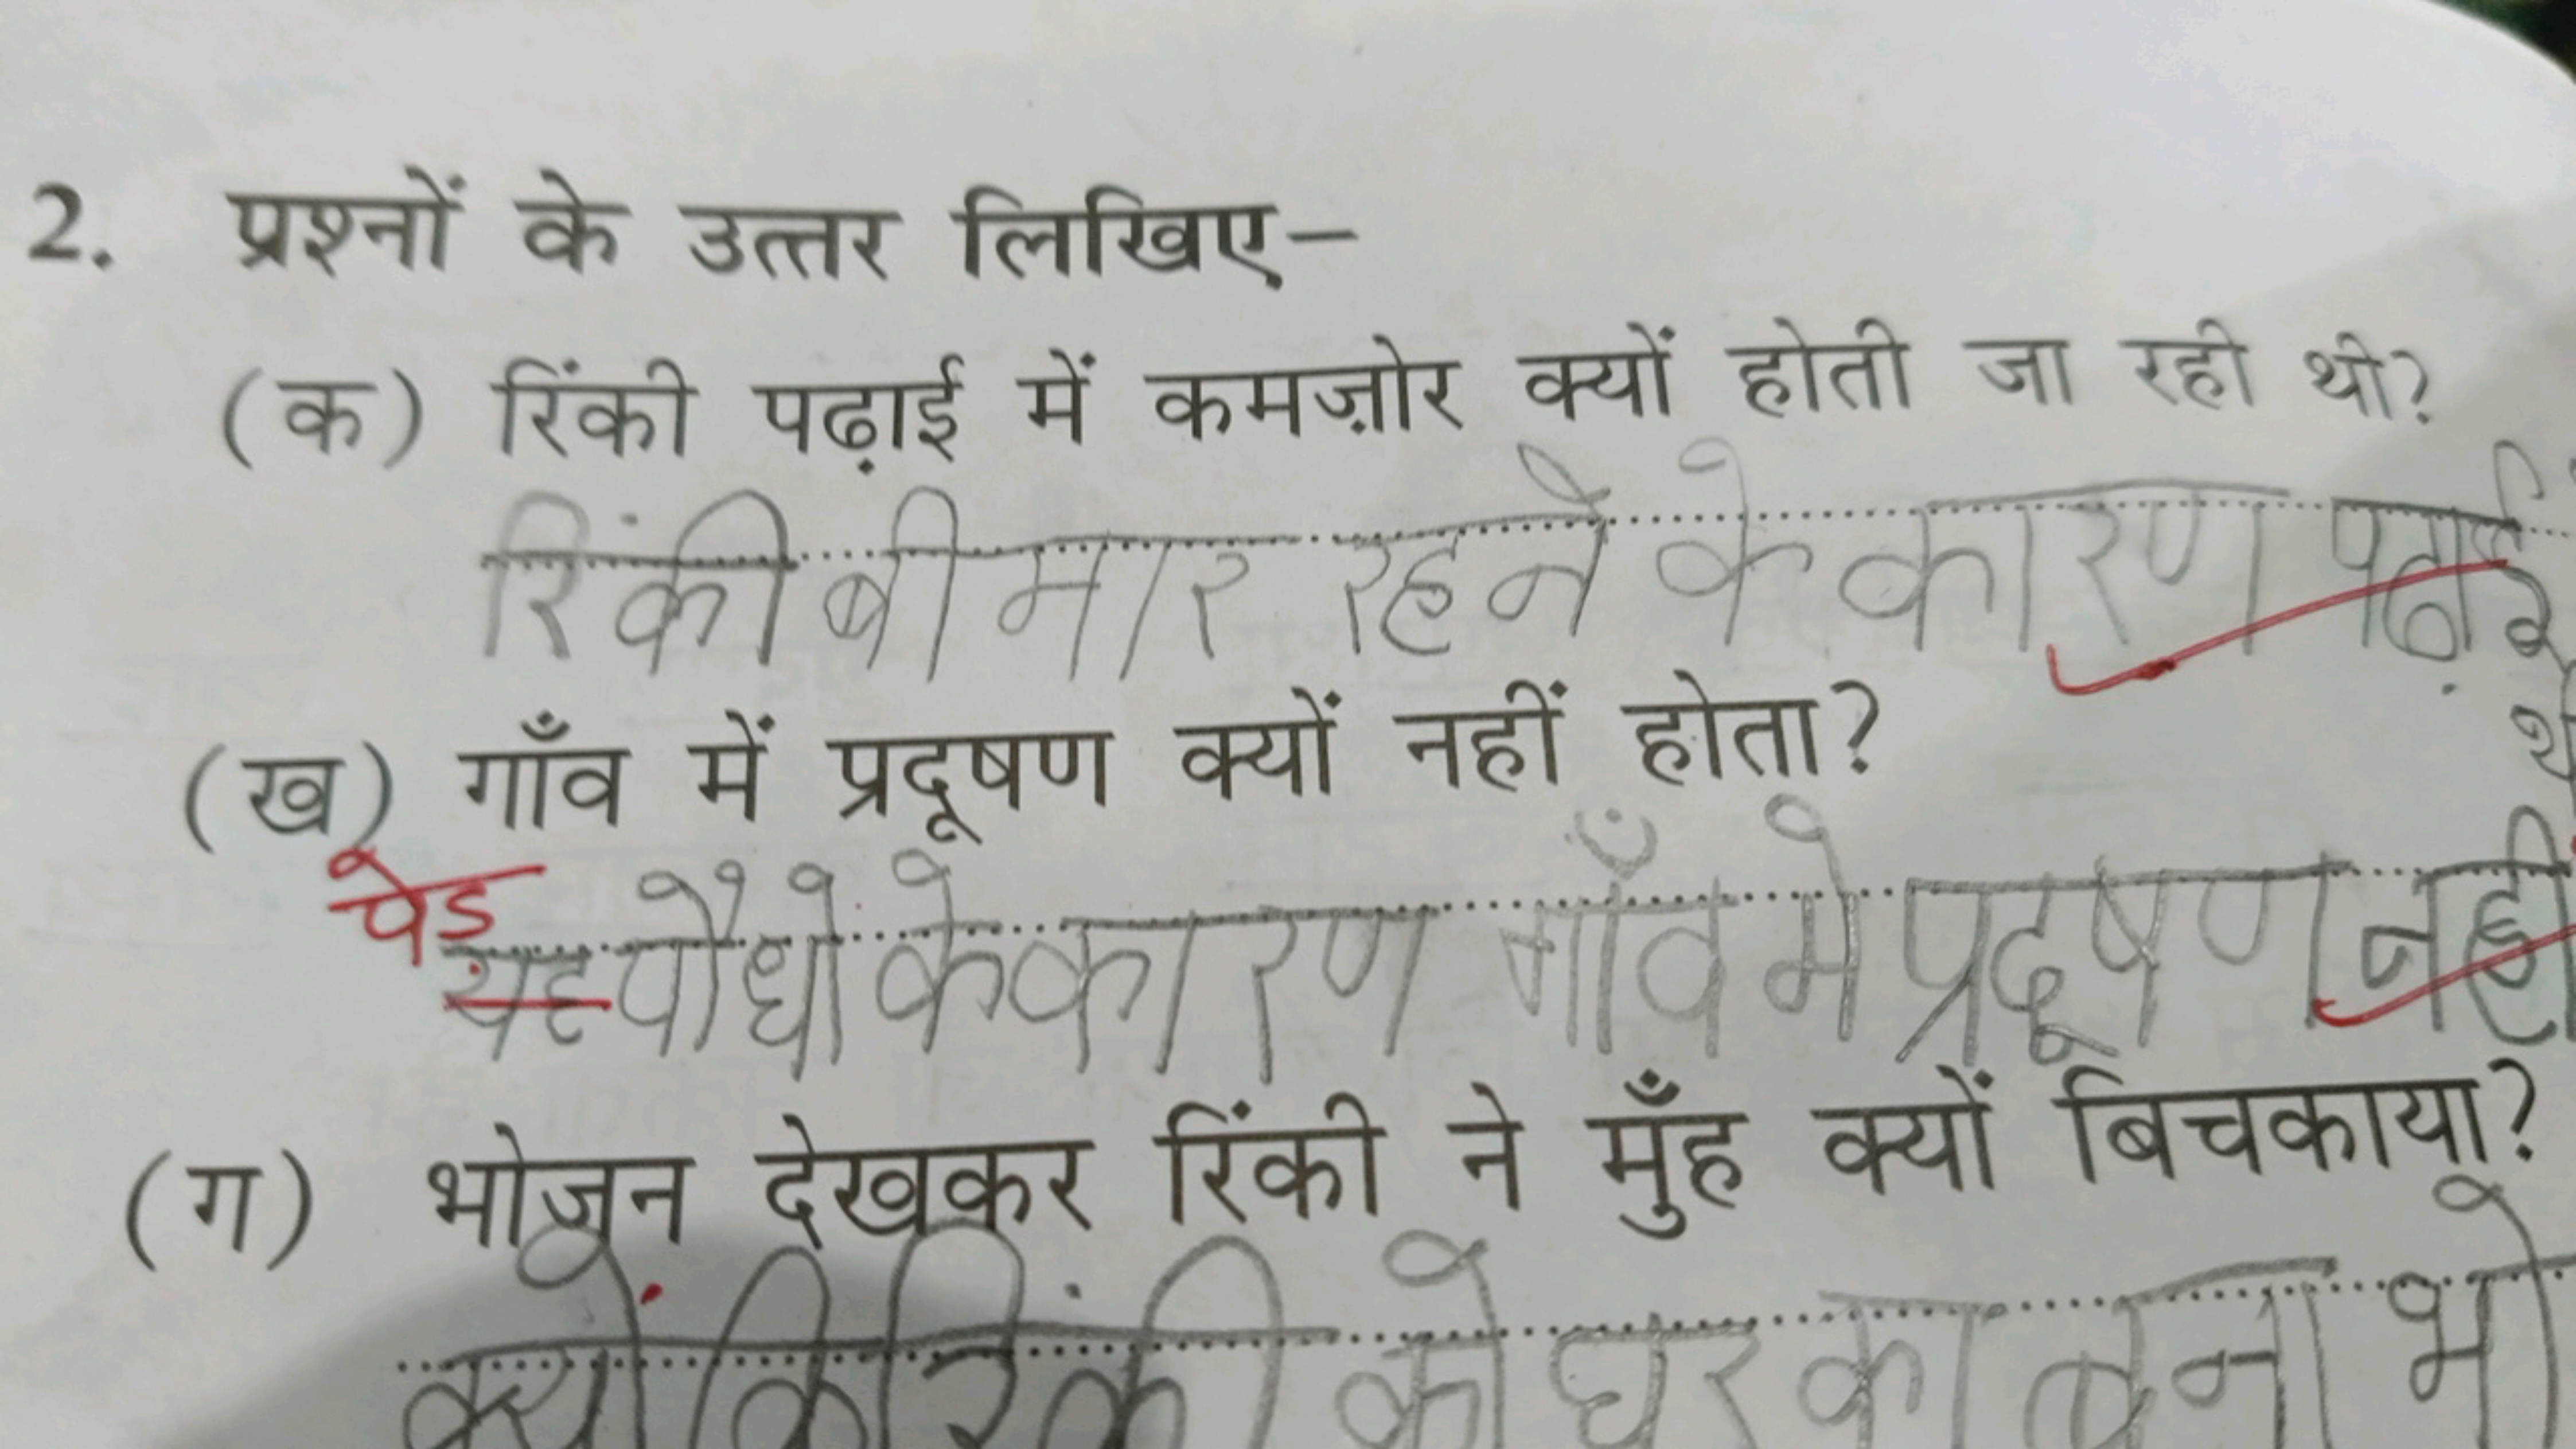 2. प्रश्नों के उत्तर लिखिए–
(क) रिंकी पढ़ाई में कमज़ोर क्यों होती जा रही थी?
रिंकी बीमार रहने के कारण पढ़ाई
(ख) गाँव में प्रदूषण क्यों नहीं होता?
पेड
यह पौधो के कारण गाँव मे प्रदूषण नही
(ग) भोजन देखकर रिंकी ने मुँह क्यों बिचकाया?
क्योंकि रिंकी को घर का बना भो